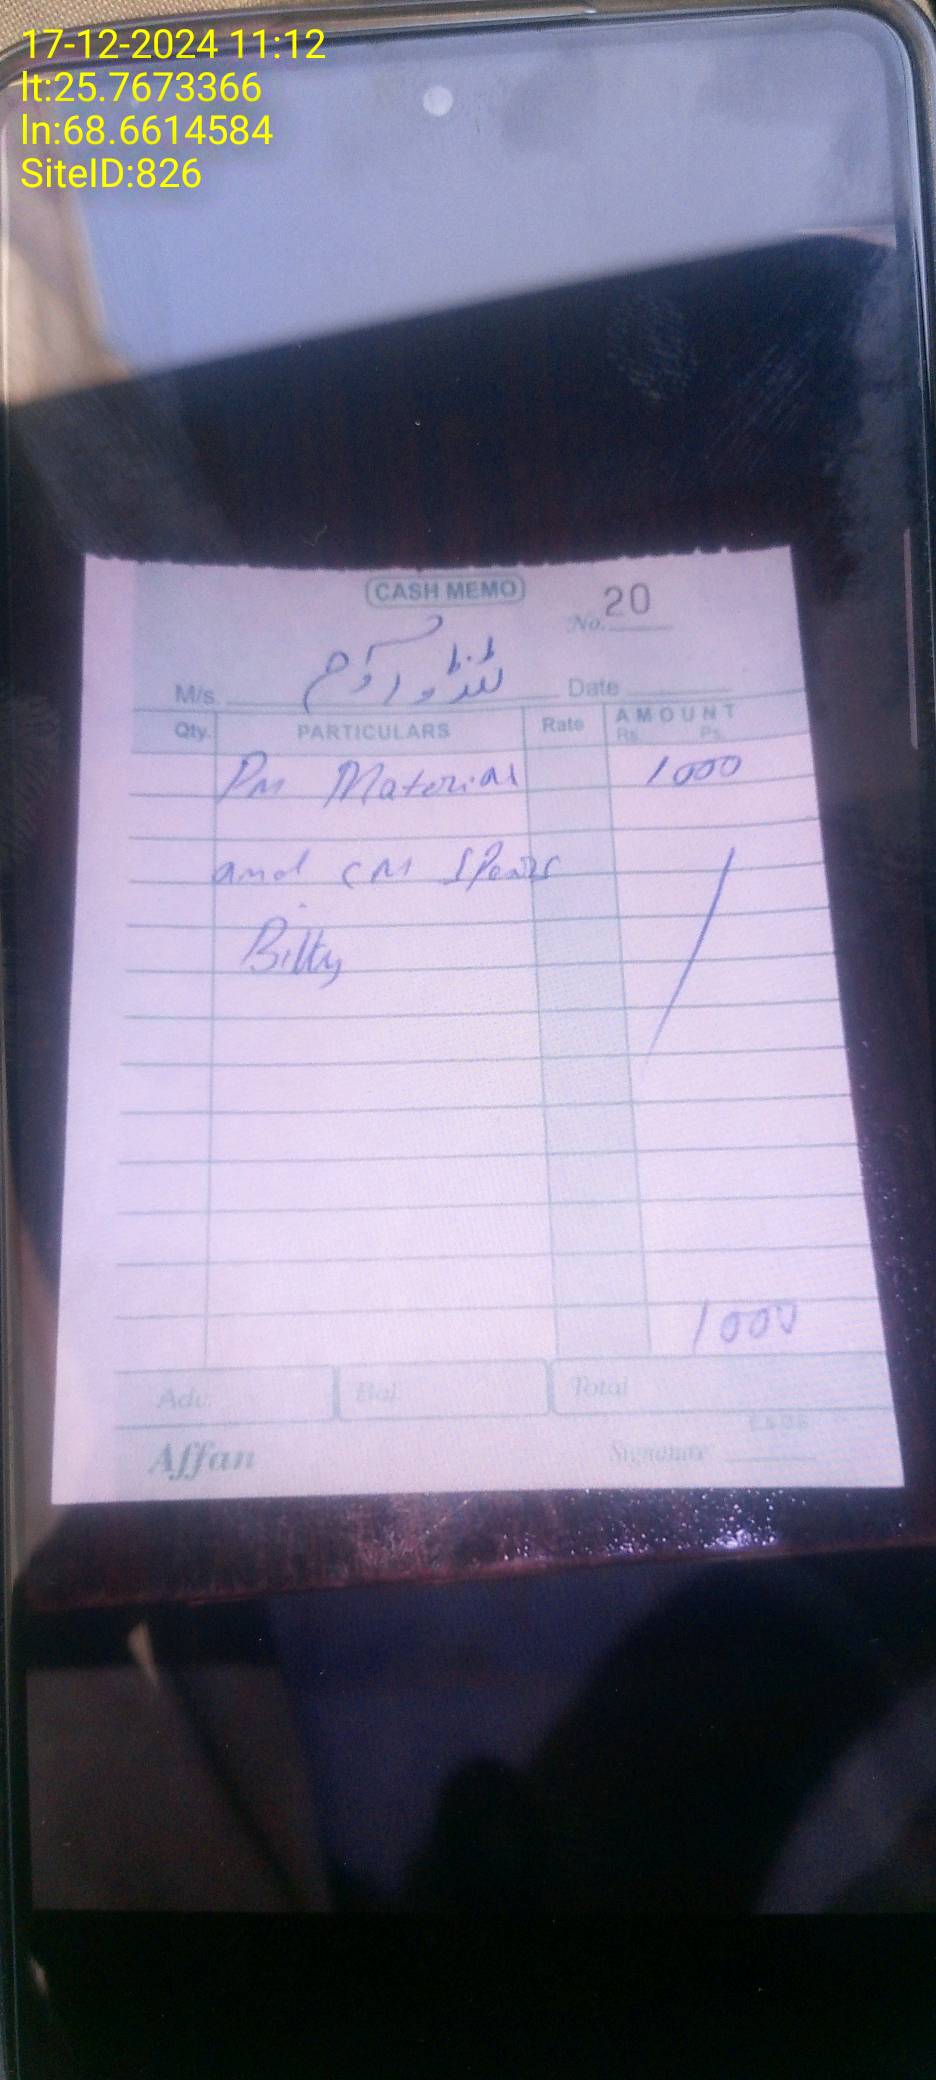 17-12-2024 11:12
lt:25.7673366
ln:68.6614584
SiteID:826
CASH MEMO
No. 20
M/s ٹنڈو آدم Date
Qty. PARTICULARS Rate AMOUNT
Rs. Ps.
Pm Material 1000
and CM SPears
Bilty
1000
Adv. Bal. Total
E.&.O.E
Affan Signature